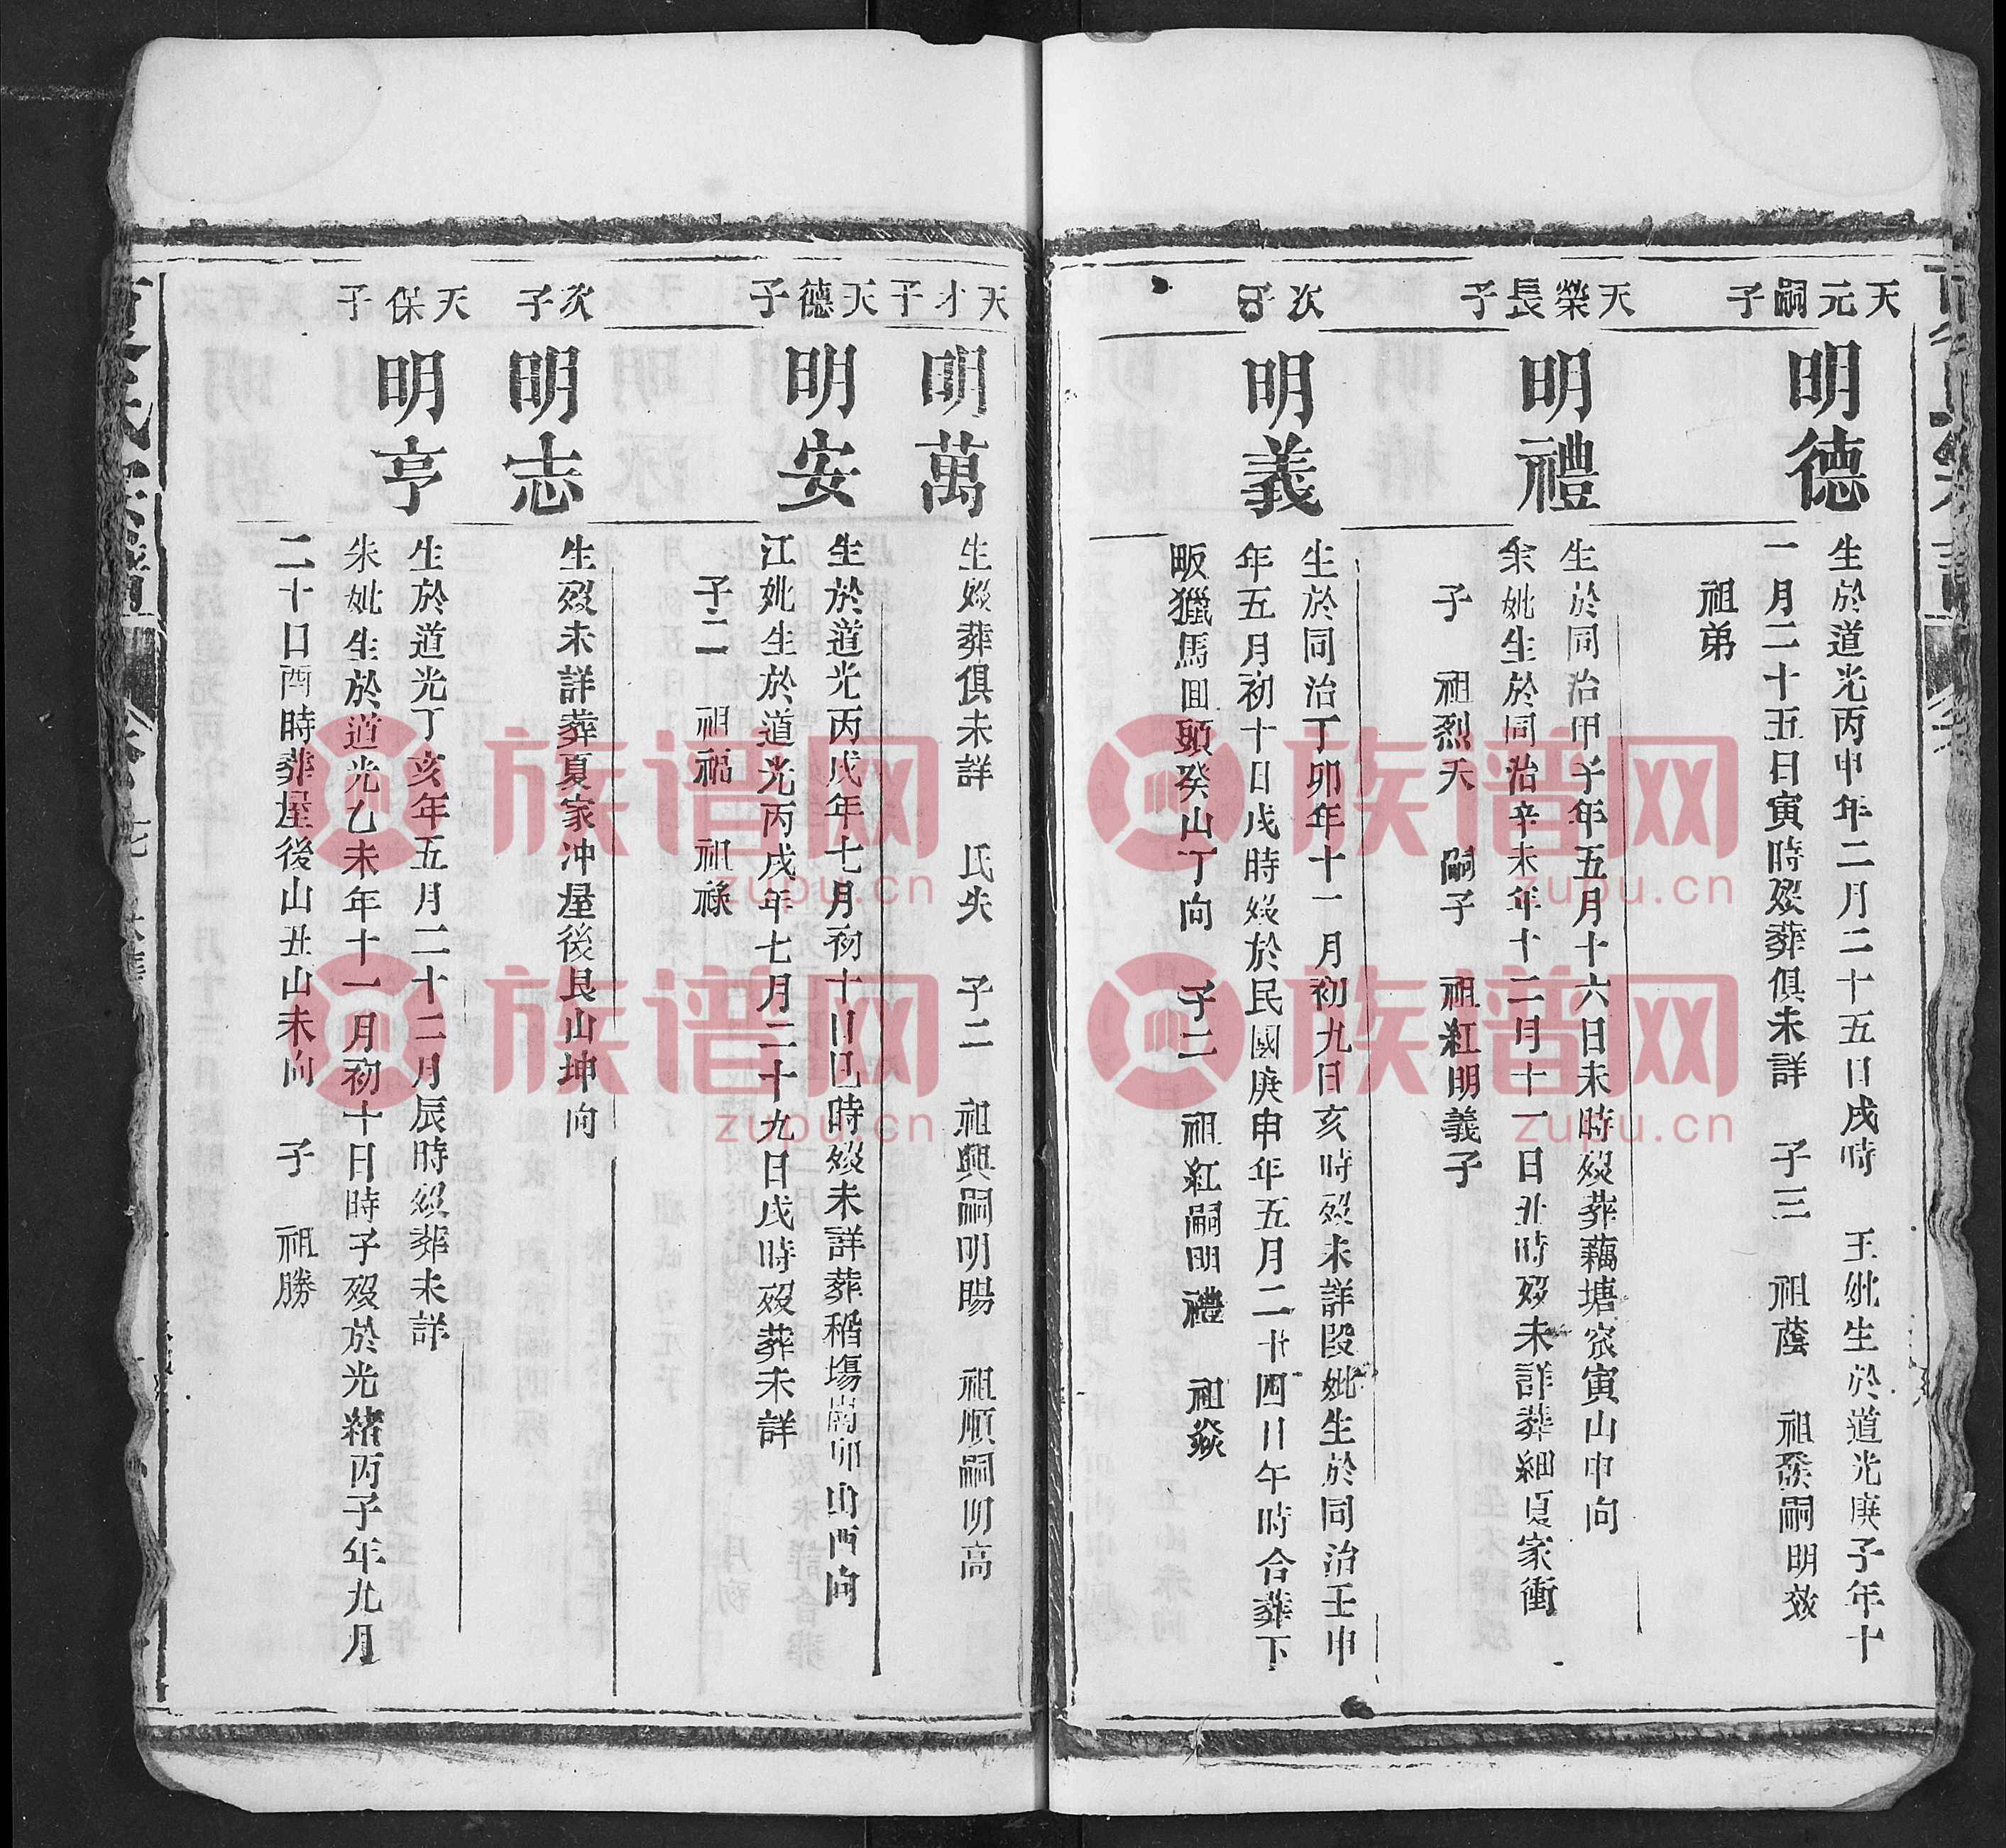 天元嗣子
明德
生於道光丙申年二月二十五日戌時 王妣生於道光庚子年十
一月二十五日寅時歿葬俱未詳 子三 祖蔭 祖嗣明效
祖弟
天榮長子
明禮
生於同治甲子年五月十六日未時歿葬藕塘寅山申向
余妣生於同治辛未年十二月十一日丑時歿未詳葬細夏家衝
子 祖烈天 嗣子 祖紅明義子
次子
明義
生於同治丁卯年十一月初九日亥時歿未詳段妣生於同治壬申
年五月初十日戌時歿於民國庚申年五月二十四日午時合葬下
畈獵馬回頭癸山丁向 子二 祖紅嗣明禮 祖焱
天才子
明萬
生歿葬俱未詳 氏失 子二 祖興嗣明陽 祖順嗣明高
天德子
明安
生於道光丙戌年七月初十日巳時歿未詳葬稻塲崗卯山酉向
江妣生於道光丙戌年七月二十九日戌時歿葬未詳
子二 祖福 祖祿
次子
明志
生歿未詳葬夏家冲屋後艮山坤向
天保子
明亨
生於道光丁亥年五月二十二月辰時歿葬未詳
朱妣生於道光乙未年十一月初十日時子歿於光緒丙子年九月
二十日酉時葬屋後山丑山未向 子 祖勝
族谱网
zupu.cn
族谱网
zupu.cn
族谱网
zupu.cn
族谱网
zupu.cn